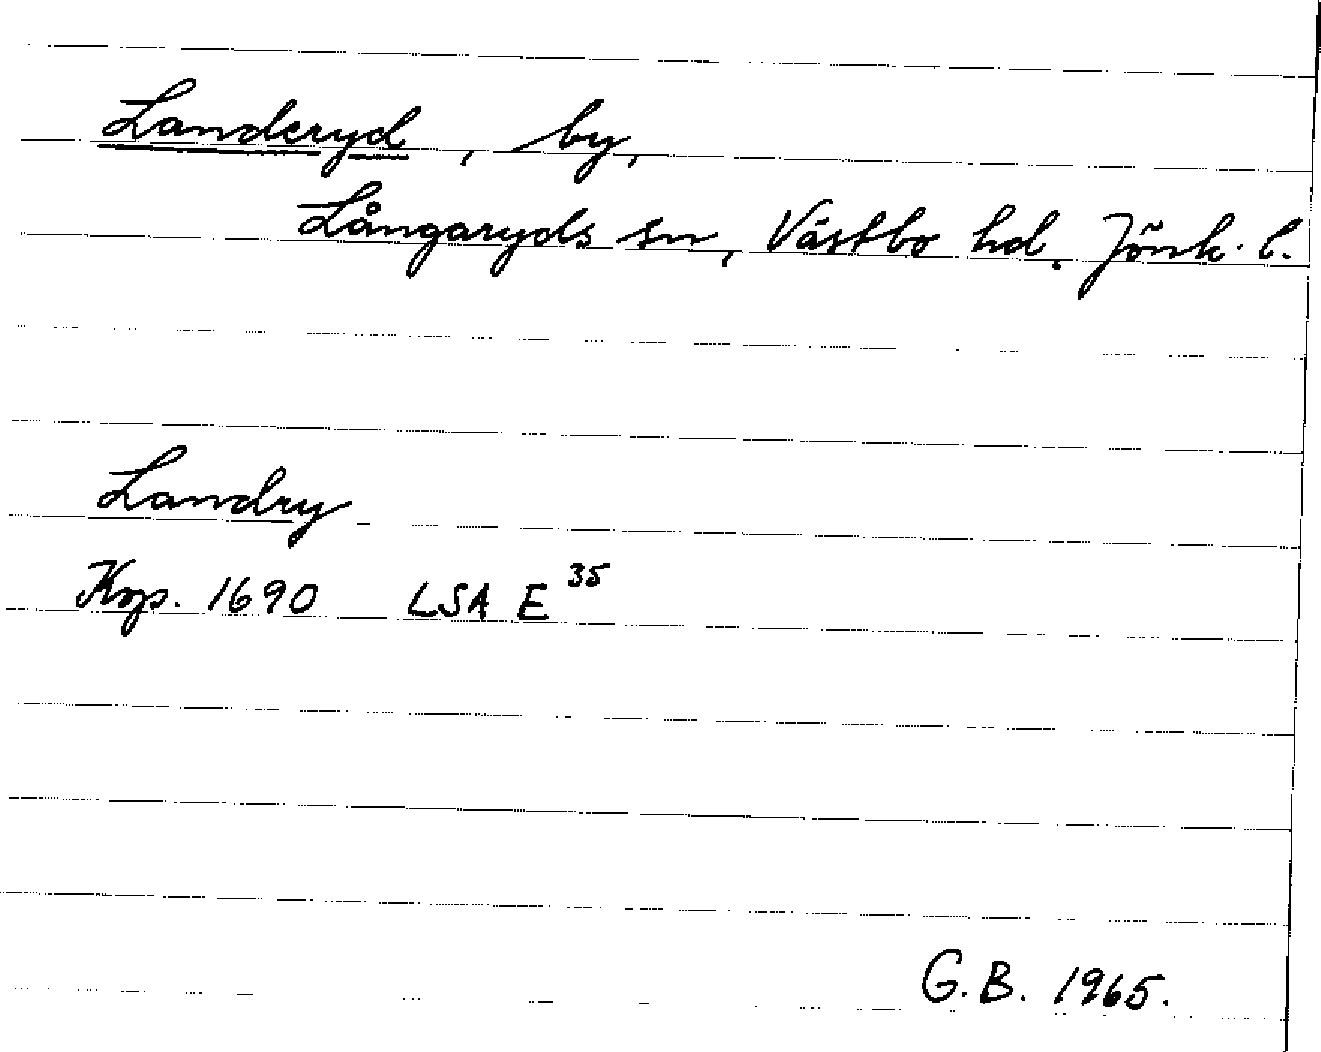 Landeryd, by,
Långaryds sn, Västbo hd. Jönk. l.
Landry
Kop. 1690 LSA E 35
G.B. 1965.